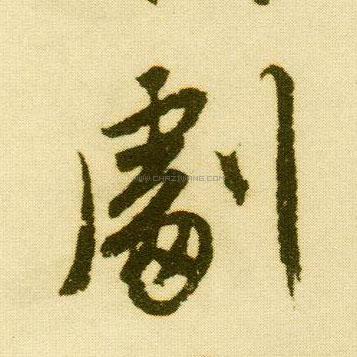 劇
WWW.CHAZIWANG.COM